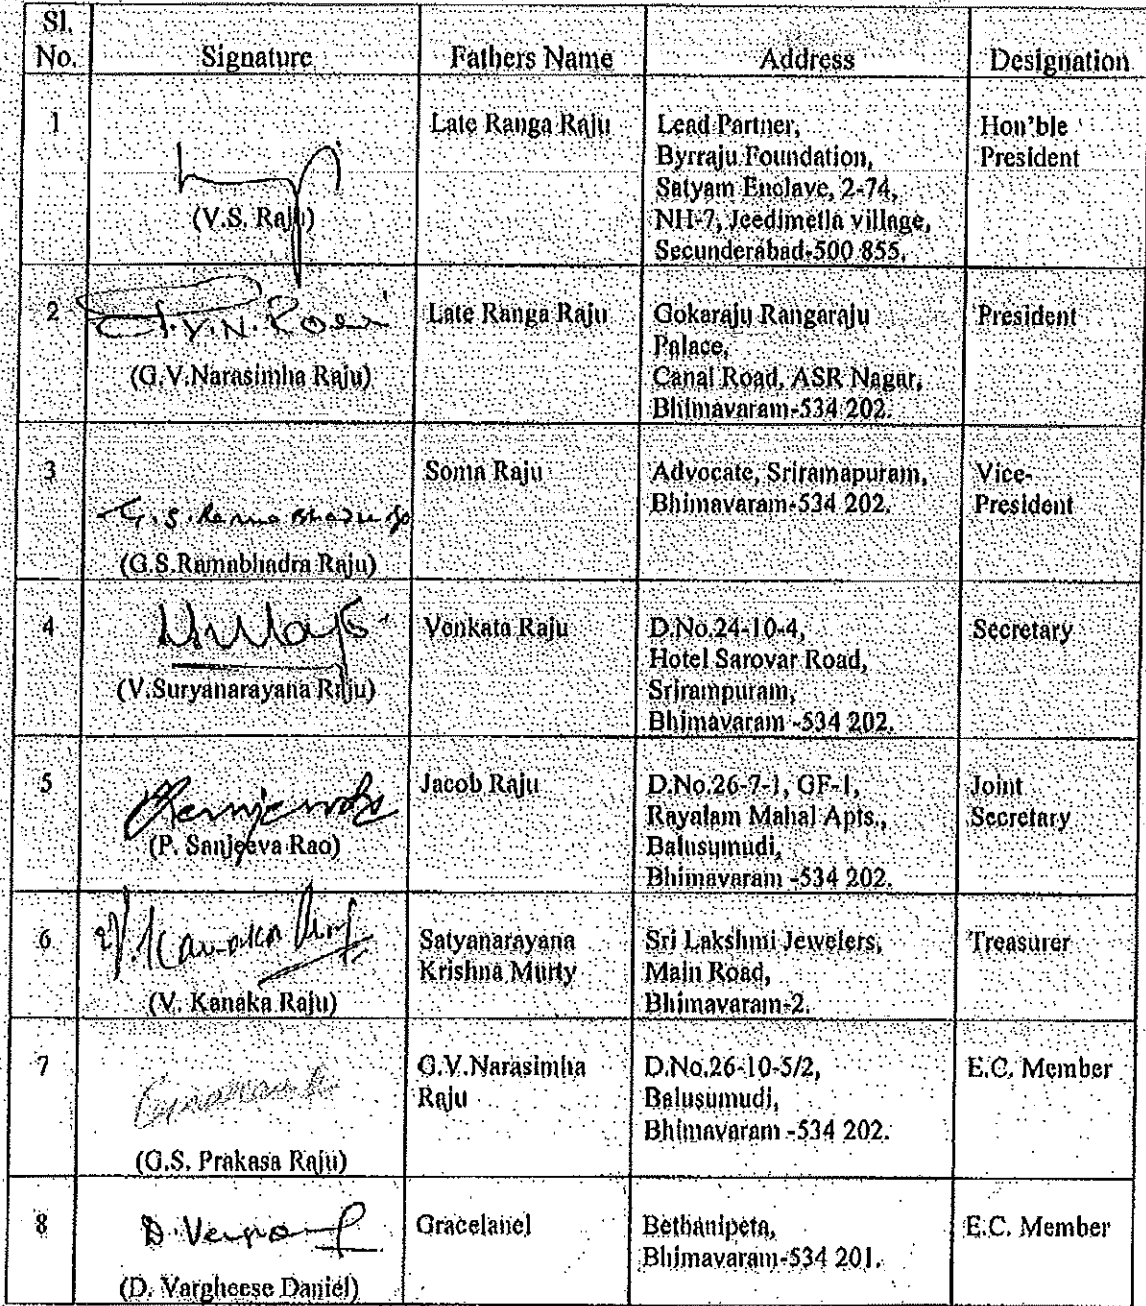 Sl.
No.
Signature
Fathers Name
Address
Designation
1
(V.S. Raju)
Late Ranga Raju
Lead Partner,
Byrraju Foundation,
Satyam Enclave, 2-74,
NH-7, Jeedimetla village,
Secunderabad-500 855.
Hon'ble
President
2
G.V.N. Raju
(G.V.Narasimha Raju)
Late Ranga Raju
Gokaraju Rangaraju
Palace,
Canal Road, ASR Nagar,
Bhimavaram-534 202.
President
3
G.S. Rama Bhadra Raju
(G.S.Ramabhadra Raju)
Soma Raju
Advocate, Sriramapuram,
Bhimavaram-534 202.
Vice-
President
4
(V.Suryanarayana Raju)
Venkata Raju
D.No.24-10-4,
Hotel Sarovar Road,
Srirampuram,
Bhimavaram -534 202.
Secretary
5
(P. Sanjeeva Rao)
Jacob Raju
D.No.26-7-1, GF-1,
Rayalam Mahal Apts.,
Balusumudi,
Bhimavaram -534 202.
Joint
Secretary
6
V. Kanaka
(V. Kanaka Raju)
Satyanarayana
Krishna Murty
Sri Lakshmi Jewelers,
Main Road,
Bhimavaram-2.
Treasurer
7
(G.S. Prakasa Raju)
G.V.Narasimha
Raju
D.No.26-10-5/2,
Balusumudi,
Bhimavaram -534 202.
E.C. Member
8
(D. Vargheese Daniel)
Gracelanel
Bethanipeta,
Bhimavaram-534 201.
E.C. Member